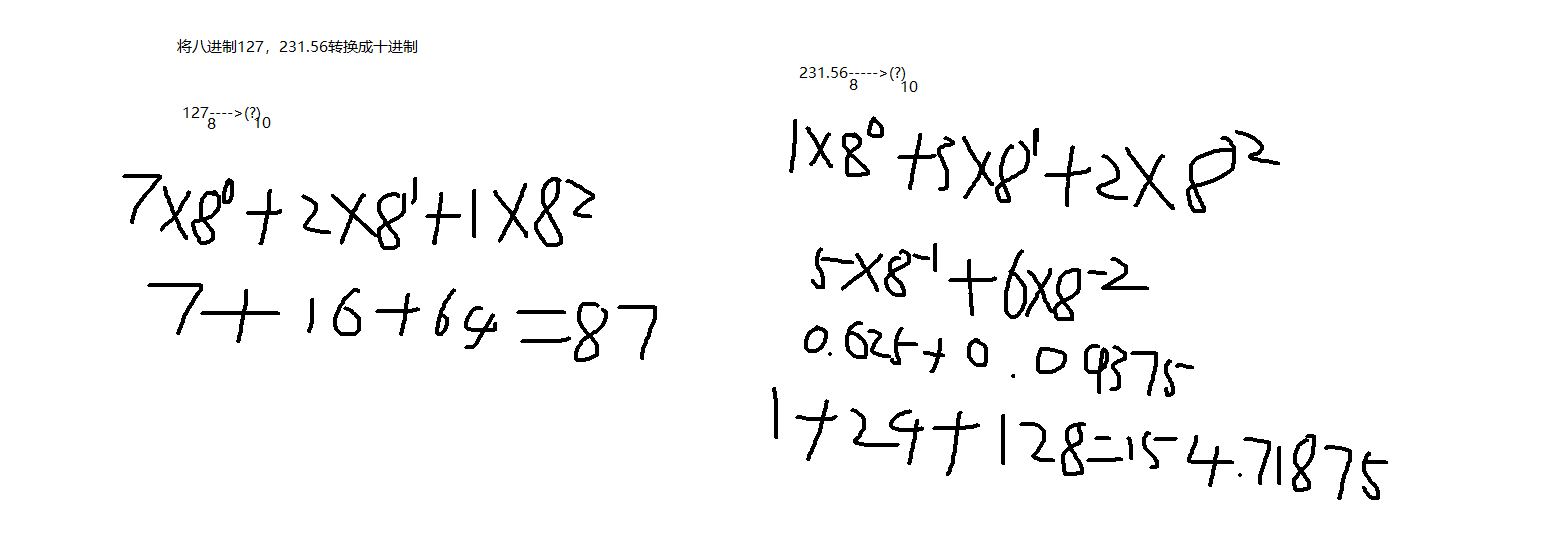 将八进制127，231.56转换成十进制
127---->(?)
8 10
7×8⁰+2×8¹+1×8²
7+16+64=87
231.56----->(?)
8 10
1×8⁰+3×8¹+2×8²
5×8⁻¹+6×8⁻²
0.625+0.09375
1+24+128=154.71875